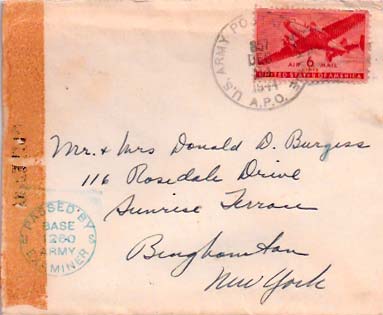 U.S. ARMY PO
DEC
1944
A.P.O.
6
AIR MAIL
UNITED STATES OF AMERICA
Mr. + Mrs Donald D. Burgess
116 Rosedale Drive
Sunrise Terrace
Binghamton
New York
PASSED BY
BASE
1260
ARMY
MINER